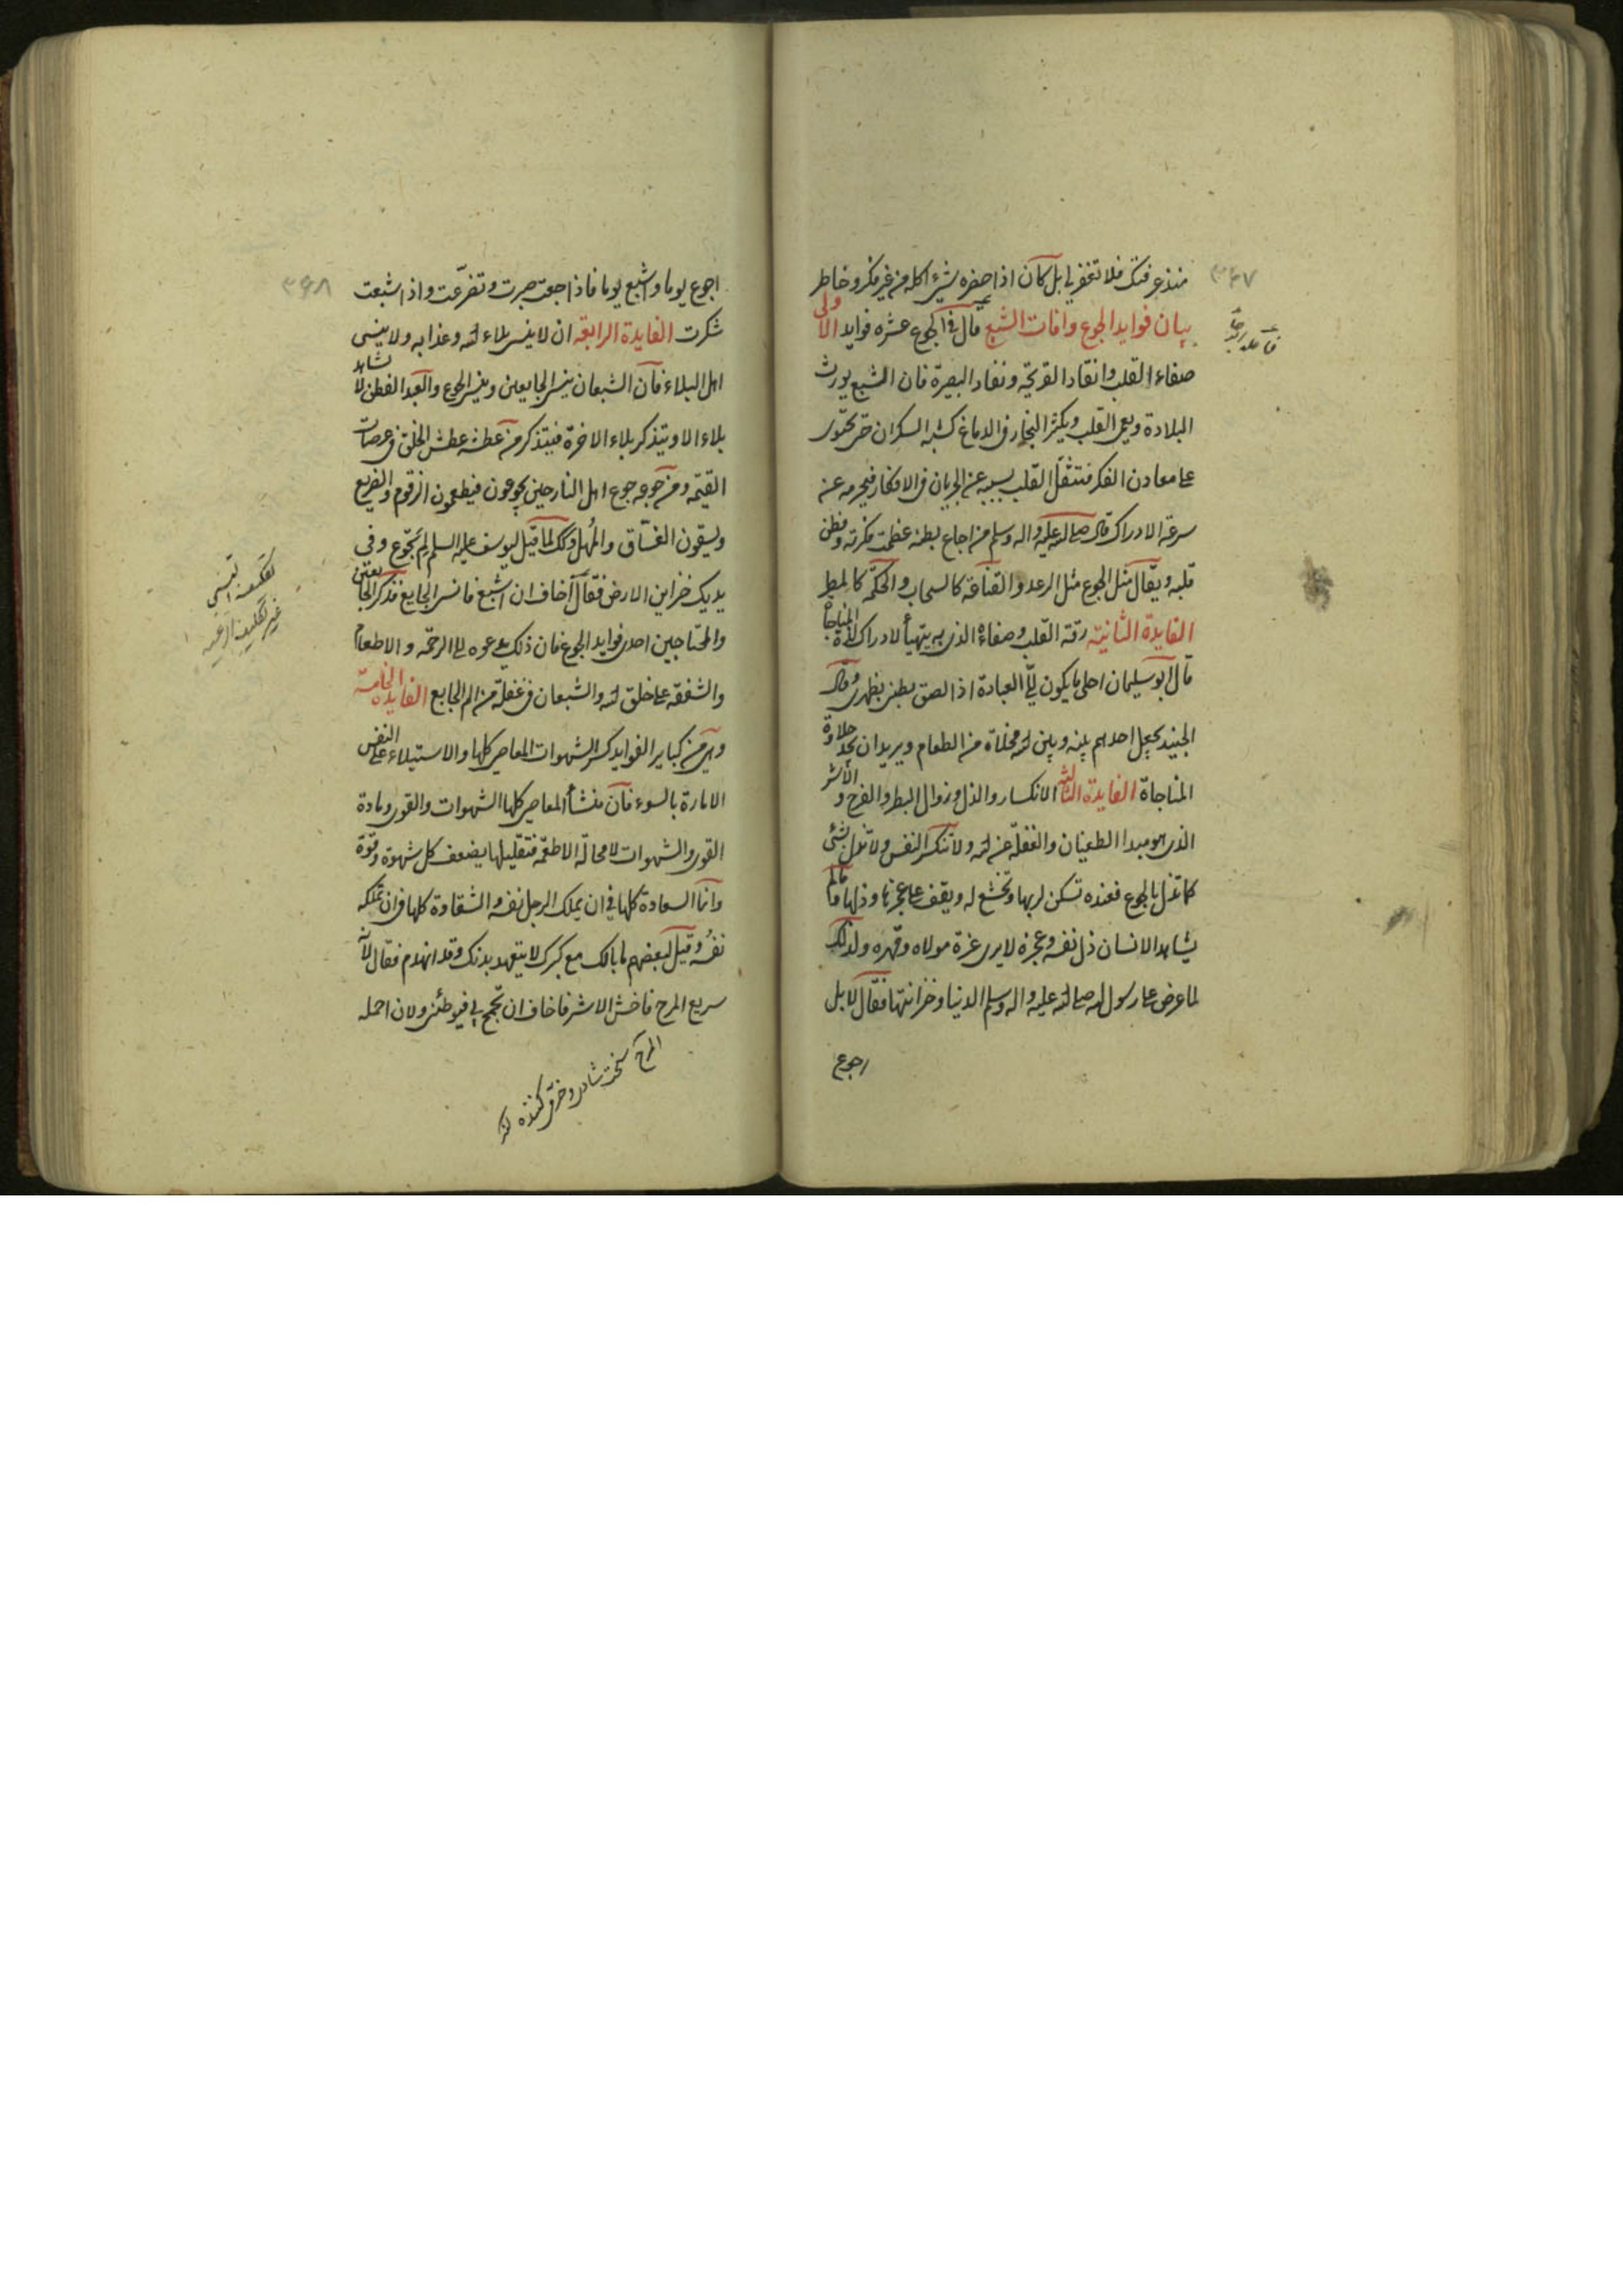 ۳۴۷
منذ عرفتك فلا تخفر لي بل كان اذا حضره شيء اكله من غير فكر وخاطر
بيان فوايد الجوع وافات الشبع قال في الجوع عشره فوايد الاولى
صفاء القلب وانقاد القريحة ونفاد البصيرة فان الشبع يورث
البلادة ويعمي القلب ويكثر البخار في الدماغ كشبه السكران حتى يحتوى
على معادن الفكر فتثقل القلب بسببه عن الجريان في الافكار فيحرمه عن
سرعة الادراك قال صلى الله عليه واله وسلم من اجاع بطنه عظمت فكرته وفطن
قلبه ويقال مثل الجوع مثل الرعد والقناعة كالسحاب والحكمة كالمطر
الفايدة الثانية رقة القلب وصفاؤه الذي به يتهيأ لادراك لذة المناجاة
قال ابو سليمان احلى ما يكون لي العبادة اذا لصق بطني بظهرى وقال
الجنيد يجعل احدهم بينه وبين الله مخلاة من الطعام ويريد ان يجد حلاوة
المناجاة الفايدة الثالثه الانكسار والذل وزوال البطر والفرح والاشر
الذى هو مبدا الطغيان والغفلة عن الله ولا تنكسر النفس ولا تذل بشئ
كما تذل بالجوع فعنده تسكن لربها وتخشع له ويقف على عجزها وذلها وما لم
يشاهد الانسان ذل نفسه وعجزه لا يرى عزة مولاه وقهره ولذلك
لما عرض على رسول الله صلى الله عليه واله وسلم الدنيا وخزائنها فقال لا بل
اجوع
۳۴۸
اجوع يوما واشبع يوما فاذا جعت صبرت وتضرعت واذا شبعت
شكرت الفايدة الرابعة ان لا ينسى بلاء الله وعذابه ولا ينسى
اهل البلاء فان الشبعان ينسى الجايعين وينسى الجوع والعبد الفطن لا يشاهد
بلاء الا ويتذكر بلاء الاخرة فيتذكر من عطشه عطش الخلق في عرصات
القيمة ومن جوعه جوع اهل النار حين يجوعون فيطعمون الزقوم والضريع
ويسقون الغساق والمهل وكذلك لما قيل ليوسف عليه السلم لم تجوع وفى
يديك خزاين الارض فقال اخاف ان اشبع فانسى الجايع فذكر الجايعين
والمحتاجين احدى فوايد الجوع فان ذلك يدعوه الى الرحمة والاطعام
والشفقه على خلق الله والشبعان في غفلة من الم الجايع الفايدة الخامسة
وهى من كباير الفوايد كسر الشهوات المعاصى كلها والاستيلاء على النفس
الامارة بالسوء فان منشأ المعاصى كلها الشهوات والقوى ومادة
القوى والشهوات لا محالة الاطعمة فتقليلها يضعف كل شهوة وقوة
وانما السعادة كلها في ان يملك الرجل نفسه والشقاوة كلها في ان تملكه
نفسه وقيل لبعضهم ما بالك مع كبرك لا يتعهد بدنك وقد انهدم فقال لانه
سريع المرح فاحش الاشر فاخاف ان تجمح بي فيورطنى ولان احمله